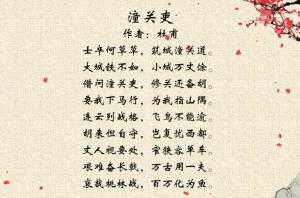 潼关吏
作者：杜甫
士卒何草草，筑城潼关道。
大城铁不如，小城万丈余。
借问潼关吏，修关还备胡。
要我下马行，为我指山隅。
连云列战格，飞鸟不能逾。
胡来但自守，岂复忧西都。
丈人视要处，窄狭容单车。
艰难奋长戟，万古用一夫。
哀哉桃林战，百万化为鱼。